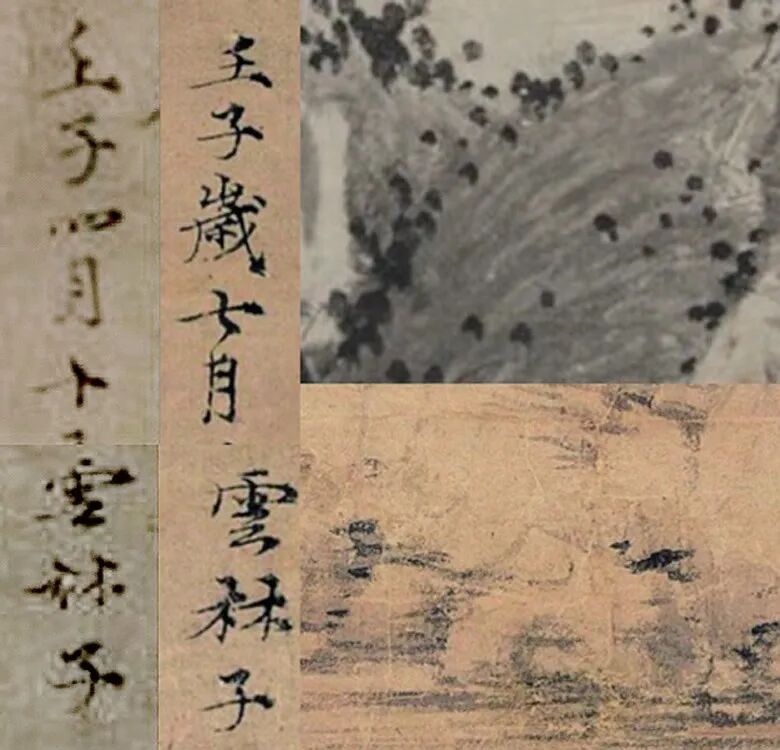 壬子歲七月
雲林子
壬子四月十
雲林子